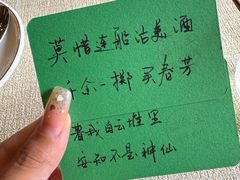 莫惜连船沽美酒
千金一掷买春芳
着我白云堆里
安知不是神仙